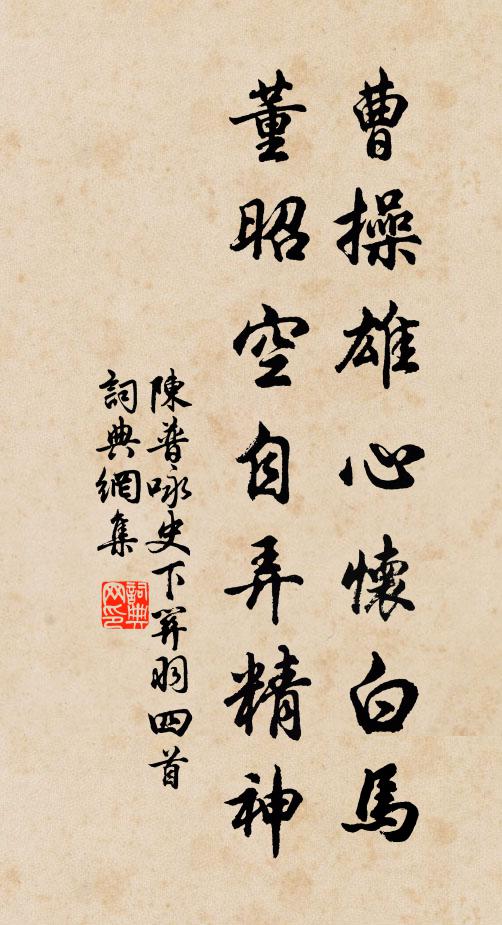 曹操雄心懷白馬
董昭空自弄精神
陳普咏史下关羽四首
詞典網集
詞典网印